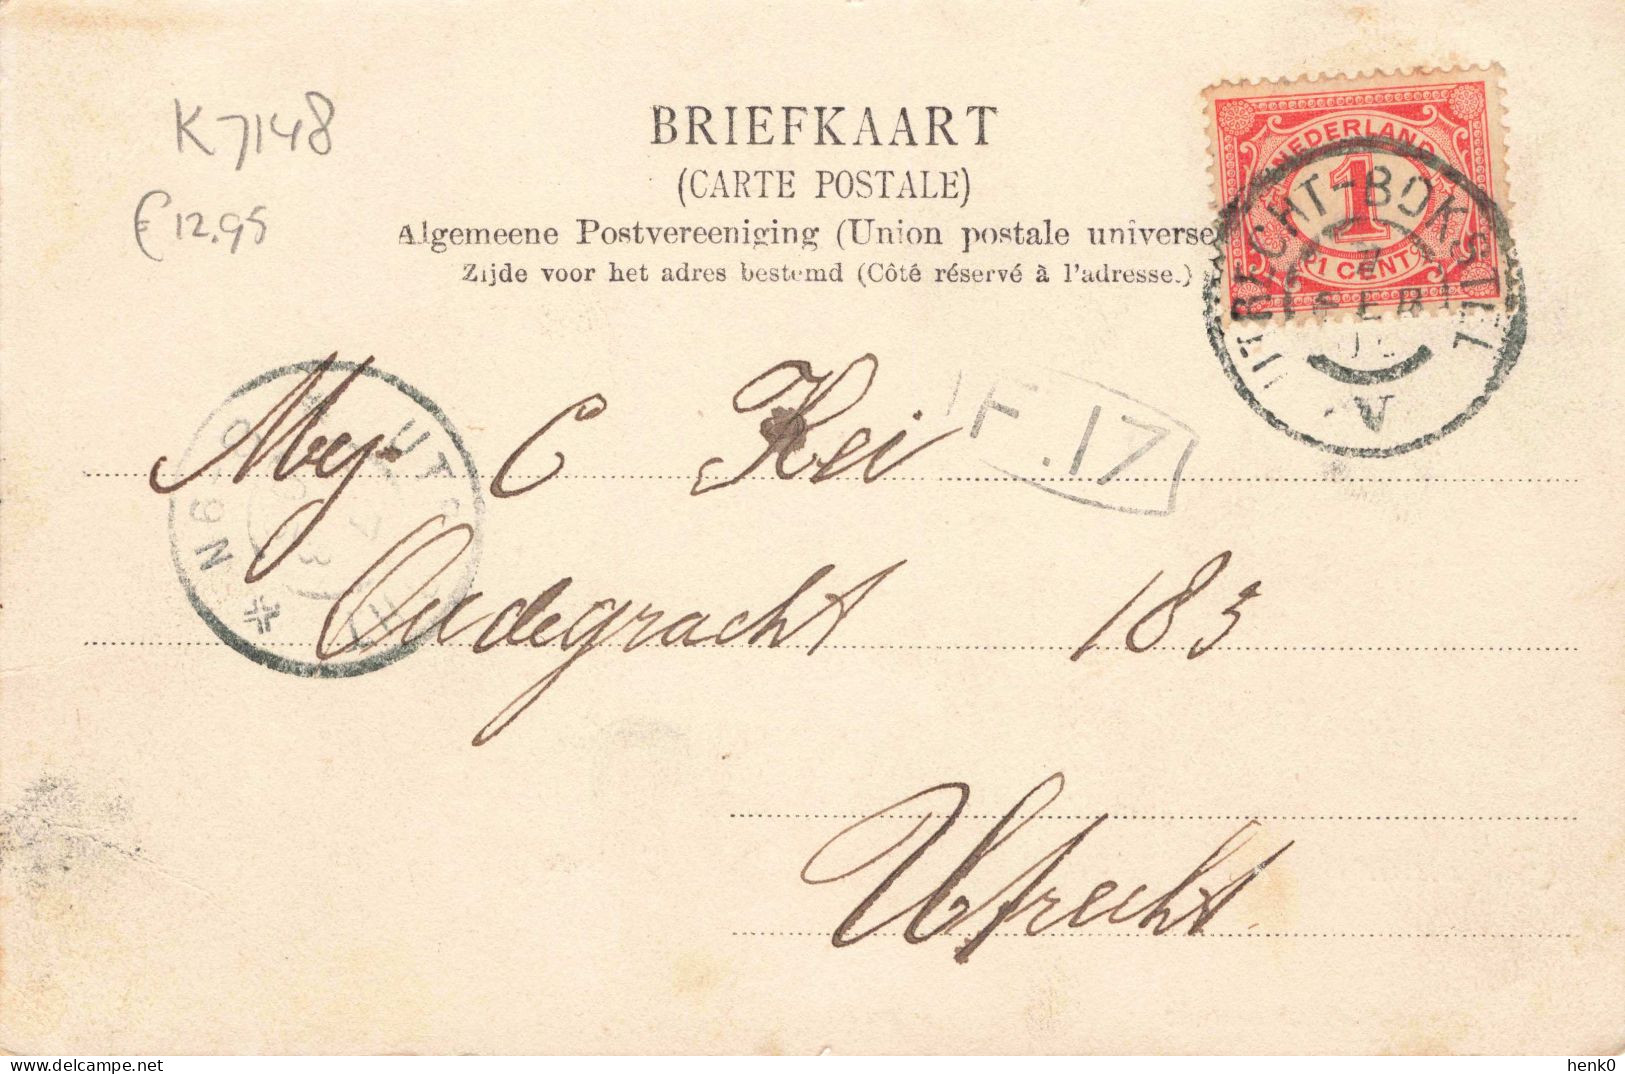 K 7148
€ 12,95
BRIEFKAART
(CARTE POSTALE)
Algemeene Postvereeniging (Union postale universe
Zijde voor het adres bestemd (Côté réservé à l'adresse.)
NEDERLAND
1
1 CENT
UTRECHT-BOKSTEL
V
F. 17
Mej C Kei
Oudegracht 183
Utrecht
henk0